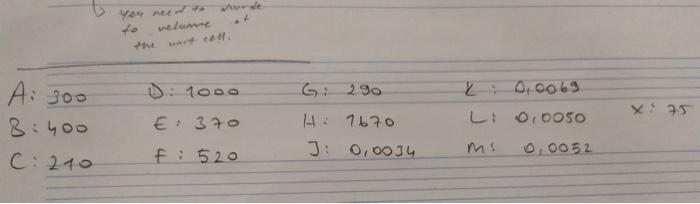 ↳ you need to divide
to volume of
the unit cell.
A: 300 D: 1000 G: 290 K: 0,0069
B: 400 E: 370 H: 1670 L: 0,0050 X: 75
C: 210 F: 520 J: 0,0034 M: 0,0052